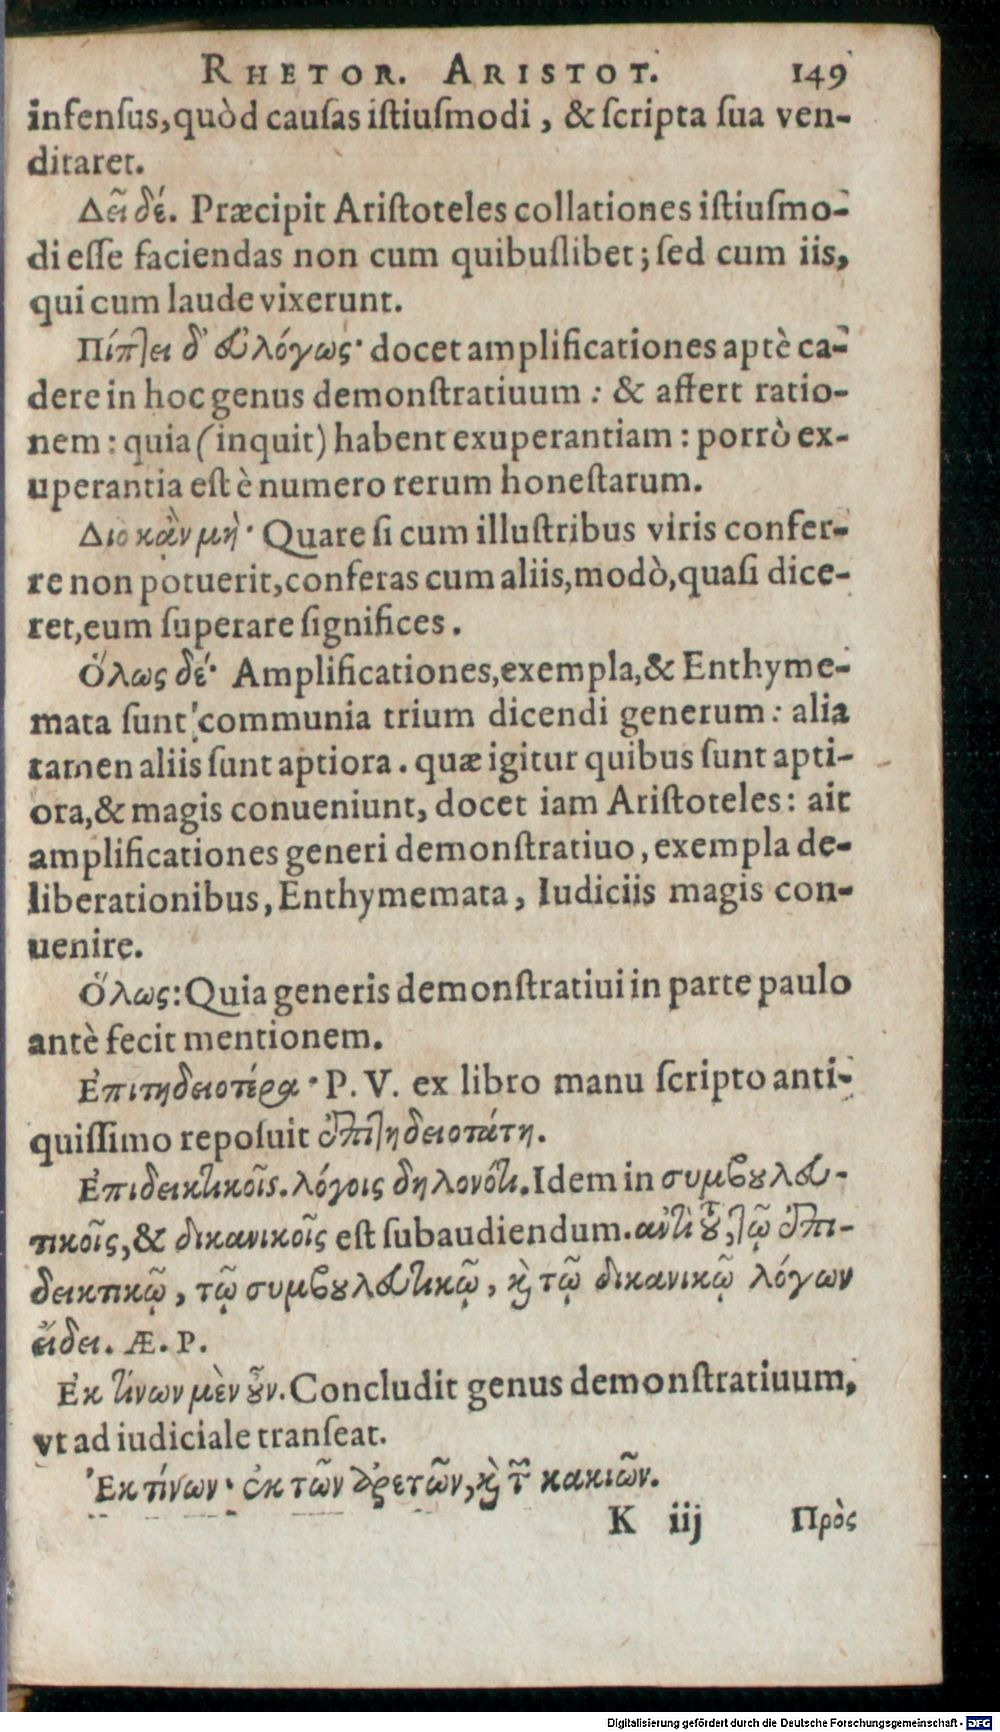 RHETOR. ARISTOT. 149
infensus, quòd causas istiusmodi, & scripta sua ven-
ditaret.
Δεῖ δέ. Præcipit Aristoteles collationes istiusmo-
di esse faciendas non cum quibuslibet; sed cum iis,
qui cum laude vixerunt.
Πίπτει δ' εὐλόγως· docet amplificationes aptè ca-
dere in hoc genus demonstratiuum: & affert ratio-
nem: quia (inquit) habent exuperantiam: porrò ex-
uperantia est è numero rerum honestarum.
Διο κἂν μὴ· Quare si cum illustribus viris confer-
re non potuerit, conferas cum aliis, modò, quasi dice-
ret, eum superare significes.
Ὅλως δέ· Amplificationes, exempla, & Enthyme-
mata sunt communia trium dicendi generum: alia
tamen aliis sunt aptiora. quæ igitur quibus sunt apti-
ora, & magis conueniunt, docet iam Aristoteles: ait
amplificationes generi demonstratiuo, exempla de-
liberationibus, Enthymemata, Iudiciis magis con-
uenire.
Ὅλως: Quia generis demonstratiui in parte paulo
antè fecit mentionem.
Ἐπιτηδειοτέρα· P. V. ex libro manu scripto anti-
quissimo reposuit ἐπιτηδειοτάτη.
Ἐπιδεικτικοῖς. λόγοις δηλονότι. Idem in συμβουλευ-
τικοῖς, & δικανικοῖς est subaudiendum. ἀντὶ τοῦ, τῷ ἐπι-
δεικτικῷ, τῷ συμβουλευτικῷ, καὶ τῷ δικανικῷ λόγων
εἴδει. Æ. P.
Ἐκ τίνων μὲν οὖν. Concludit genus demonstratiuum,
vt ad iudiciale transeat.
Ἐκ τίνων· ἐκ τῶν ἀρετῶν, καὶ τῶν κακιῶν.
K iij Πρὸς
Digitalisierung gefördert durch die Deutsche Forschungsgemeinschaft - DFG